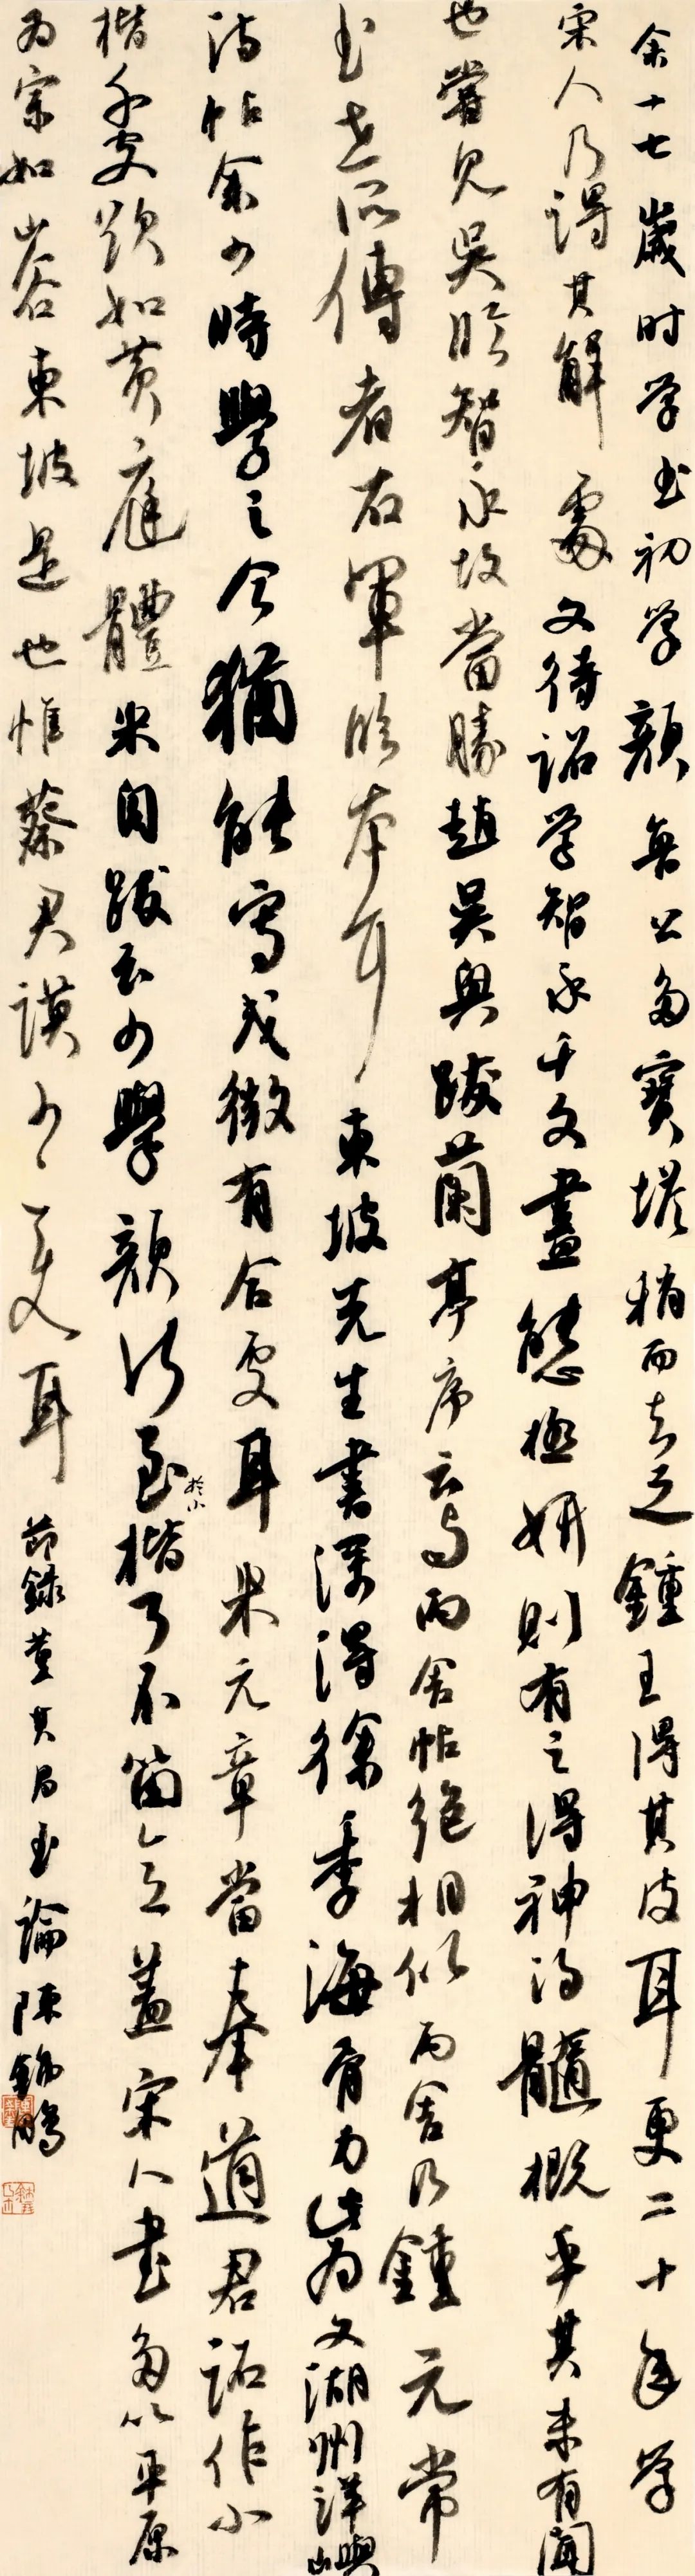 余十七歲时学书初学顏魯公多寶塔稍而去之鍾王得其皮耳更二十年学
宋人乃得其解處文待詔学智永千文盡態極妍則有之得神得髓概乎其未有聞
也嘗見吳臨智永故當勝趙吳興跋蘭亭序云與丙舍帖絶相似丙舍乃鍾元常
书世所傳者右軍臨本耳東坡先生書深得徐季海骨力此為文湖州洋嶼
詩帖余少時學之今猶能寫或微有合處耳米元章當奉道君詔作小
楷千文欲如黄庭體米自跋云少學顏行至於小楷了不留意蓋宋人書多以平原
为宗如山谷東坡是也惟蔡君謨少變耳節録董其昌书論陳錦鵬